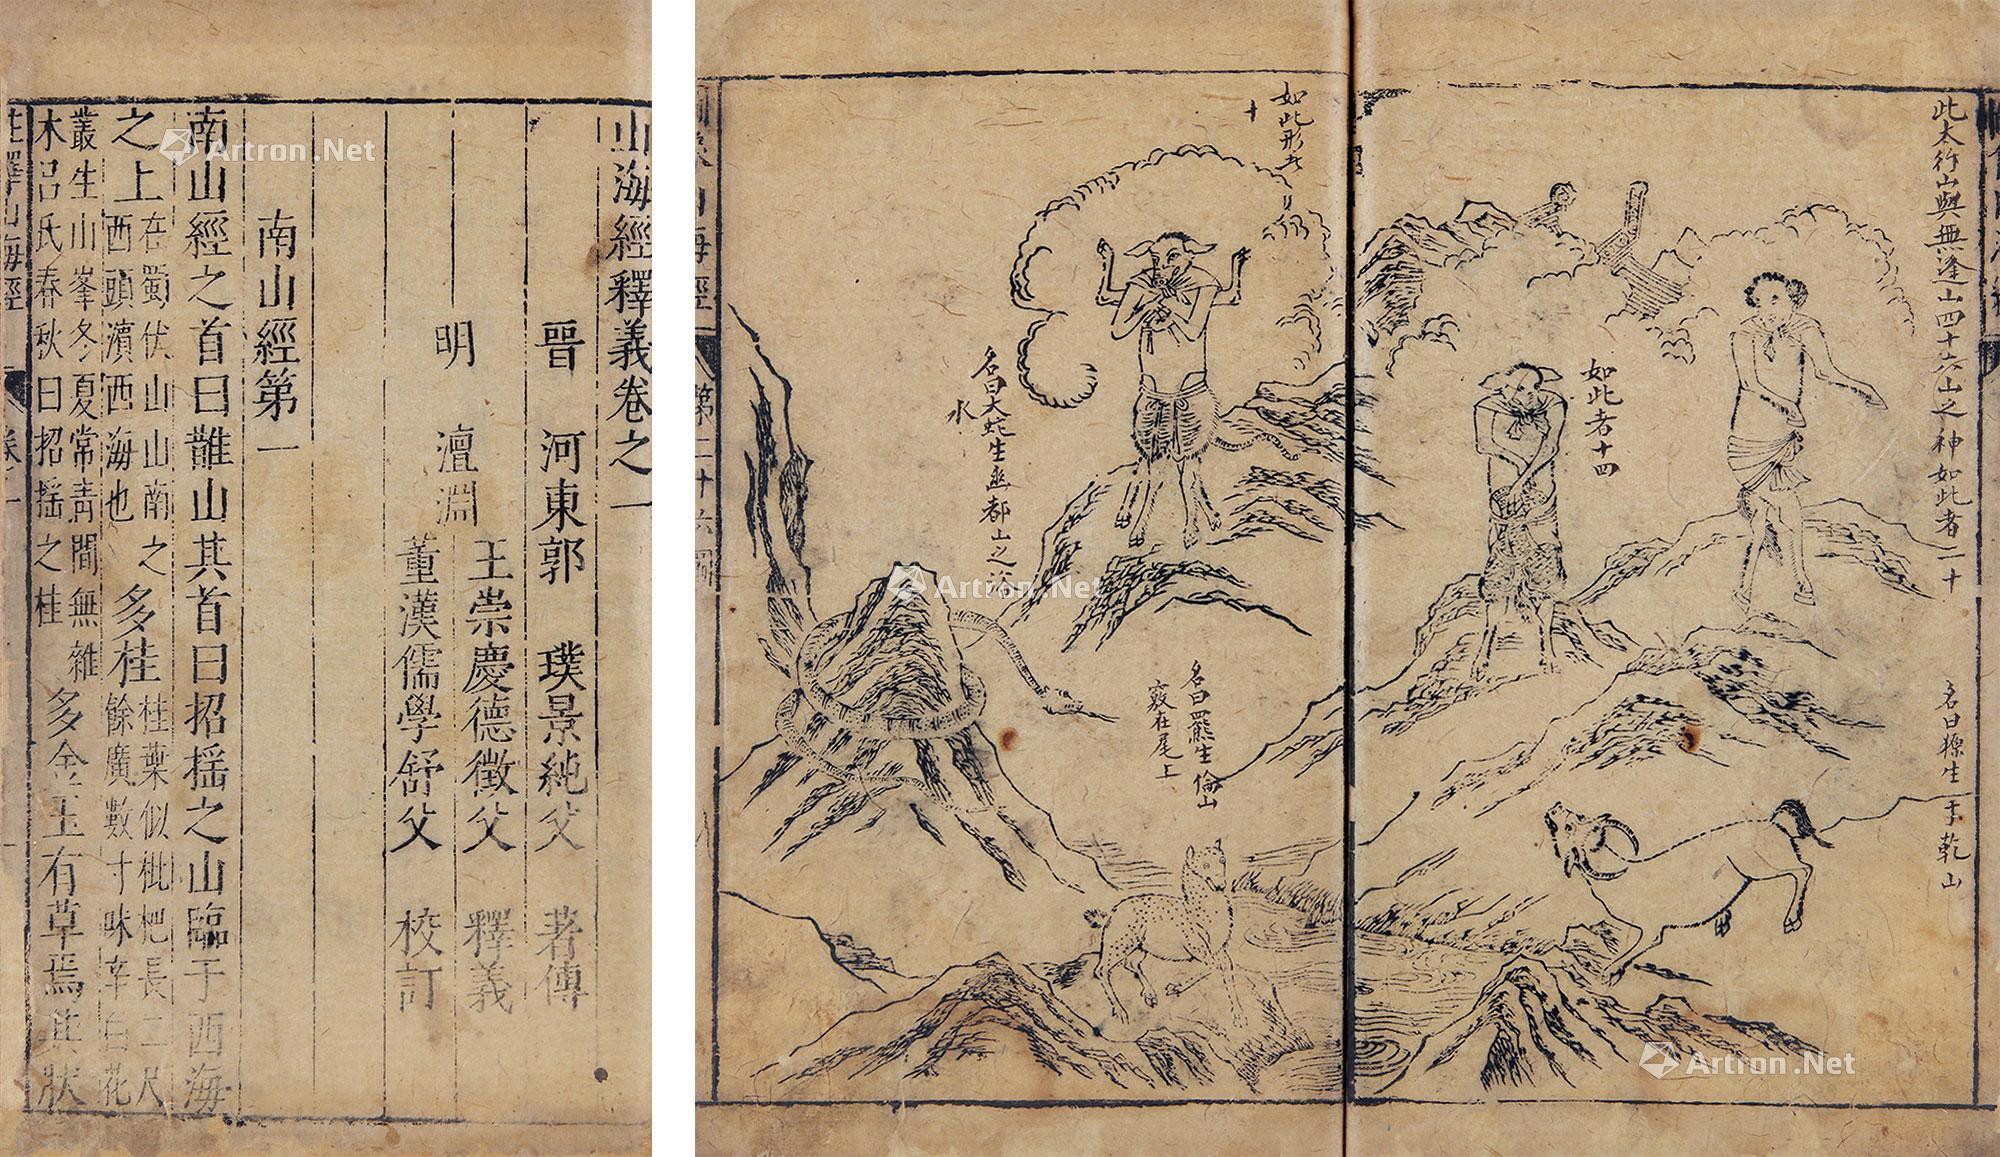 山海經釋義卷之一
晉 河東郭 璞景純父 著傳
明 澶淵 王崇慶德徵父 釋義
董漢儒學舒父 校訂
南山經第一
南山經之首曰䧿山其首曰招搖之山臨于西海
之上在蜀伏山山南之西頭濱西海也多桂桂葉似枇杷長二尺餘廣數寸味辛白花
叢生山峯冬夏常青間無雜木呂氏春秋曰招搖之桂多金玉有草焉其狀
註釋山海經 卷一
此太行山與無逢山四十六山之神如此者二十
名曰獂生于乾山
如此者十四
如此形者
十
名曰大蛇生幽都山之浴
水
名曰羆生倫山
竅在尾上
山海經
第二十六圖
Artron.Net
Artron.Net
Artron.Net